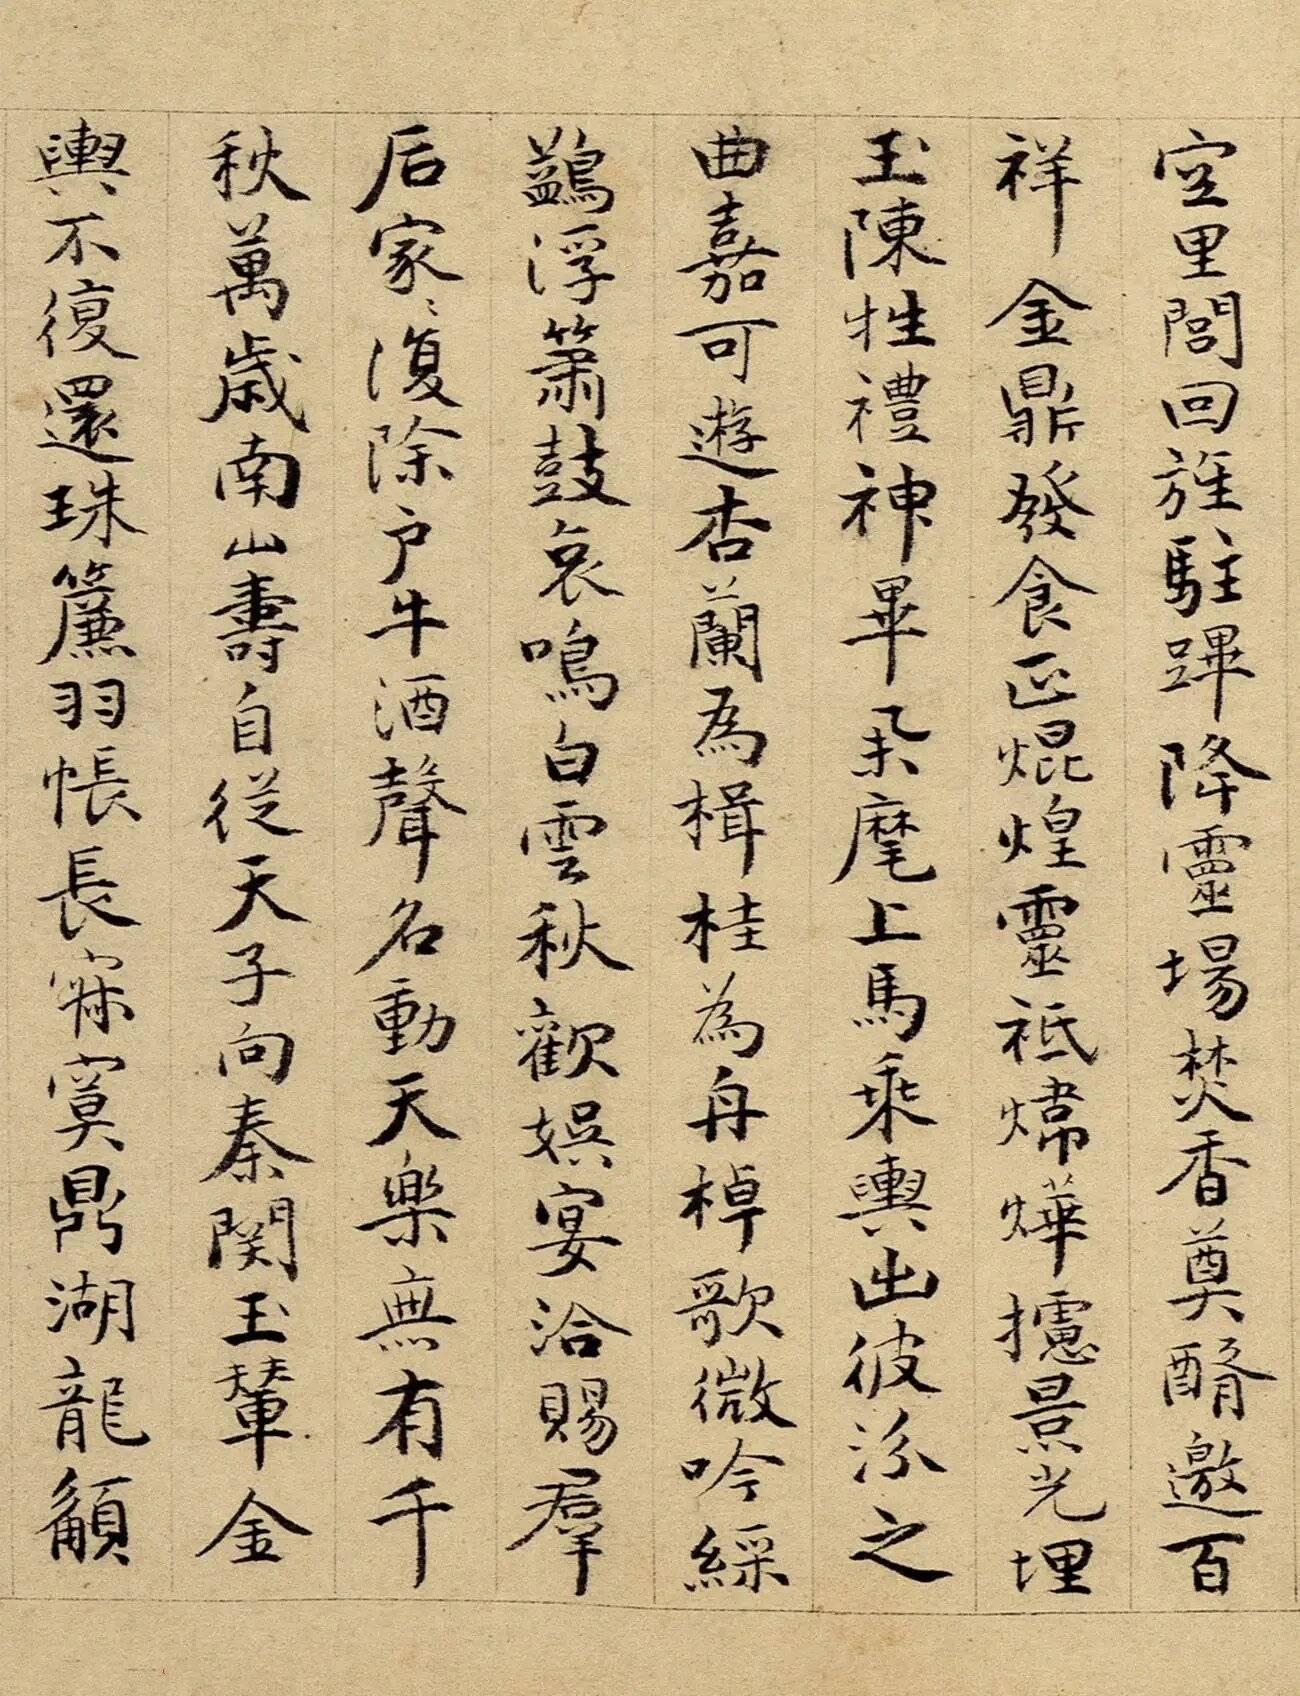 空里閭回旌駐蹕降靈場焚香奠醑邀百
祥金鼎發食正焜煌靈祇煒燁攄景光埋
玉陳牲禮神畢朶麾上馬乘輿出彼汾之
曲嘉可遊杏蘭為楫桂為舟棹歌微吟綵
鷁浮簫鼓哀鳴白雲秋歡娛宴洽賜羣
后家〻復除戶牛酒聲名動天樂無有千
秋萬歲南山壽自從天子向秦関玉輦金
輿不復還珠簾羽帳長寂寞鼎湖龍